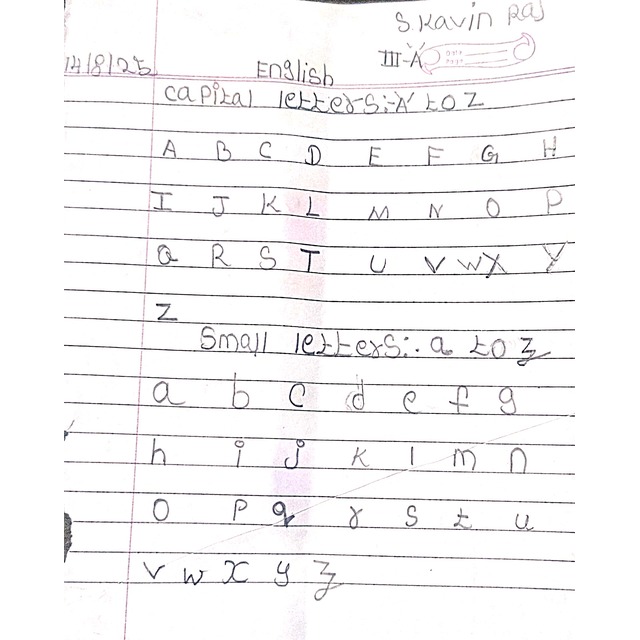 S. Kavin Raj
III-'A'
14/8/25
English
Capital letters:- 'A' to Z
A B C D E F G H
I J K L M N O P
Q R S T U V W X Y
Z
Small letters:- a to z
a b c d e f g
h i j k l m n
o p q r s t u
v w x y z